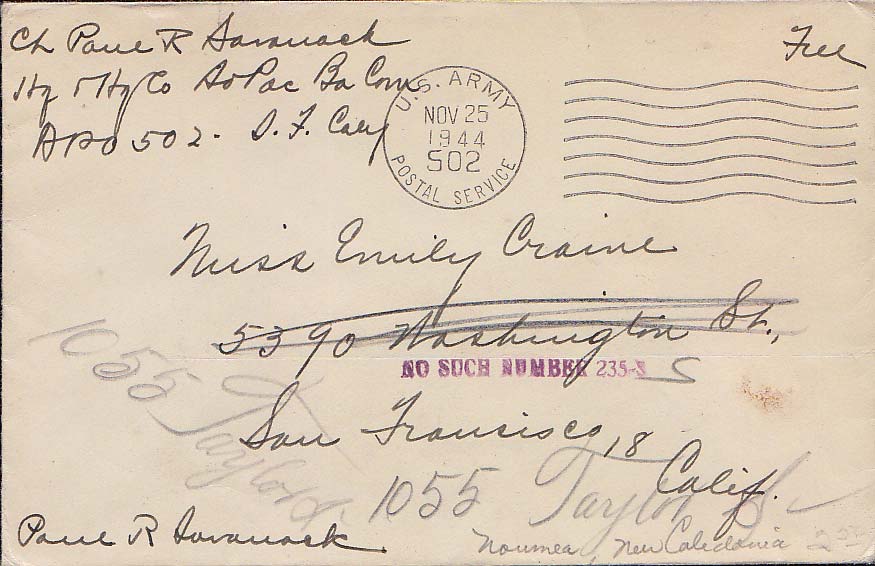 Ch Paul R Savanack
Free
Hq & Hq Co SoPac Ba Com
APO 502. S. F. Calif
U.S. ARMY
NOV 25
1944
502
POSTAL SERVICE
Miss Emily Craine
5390 Washington St.,
NO SUCH NUMBER 235-S
San Francisco, 18
Calif.
1055 Taylor
1055 Taylor St
Paul R Savanack
Noumea, New Caledonia